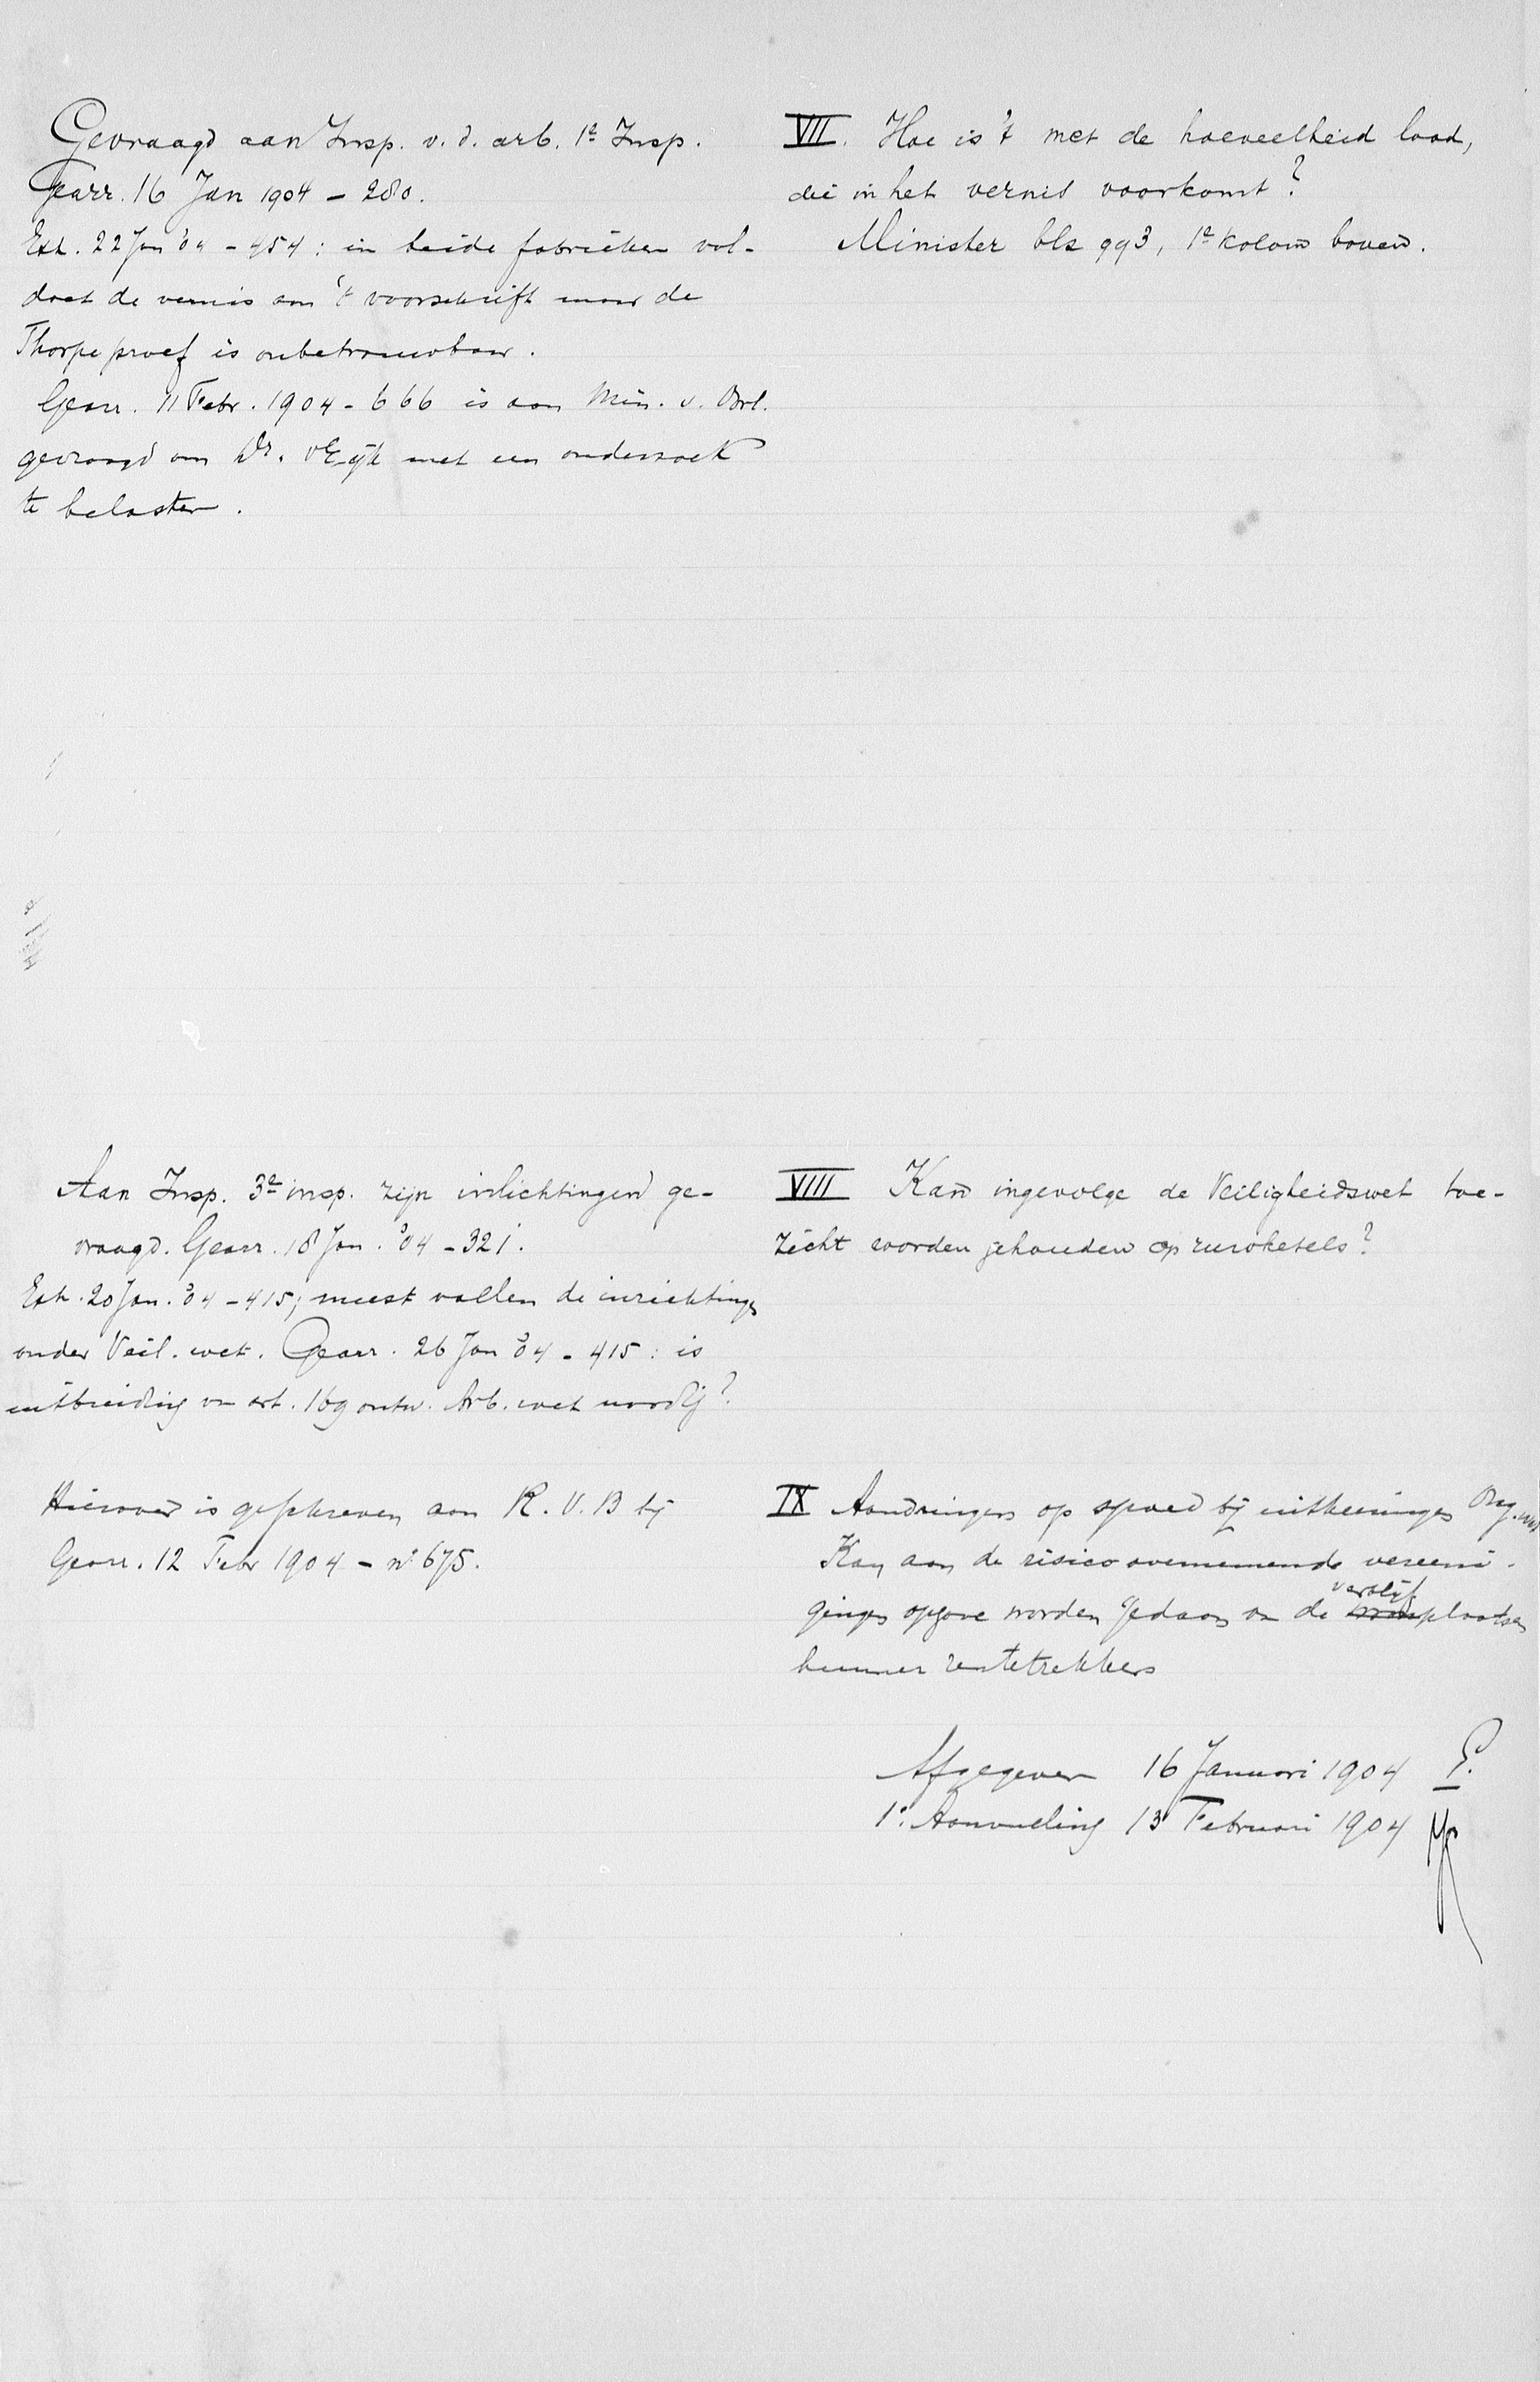 Gevraagd aan Insp. v. d. arb. 1e Insp.
Gearr. 16 Jan 1904 - 280.
Exh. 22 Jan '04 - 454: in beide fabrieken vol-
doet de vernis aan 't voorschrift maar de
Thorpe proef is onbetrouwbaar.
Gearr. 11 Febr. 1904 - 666 is aan Min. v. Oorl.
gevraagd om Dr. v Eijk met een onderzoek
te belasten.
VII. Hoe is 't met de hoeveelheid lood,
die in het vernis voorkomt?
Minister blz 993, 1e kolom boven.
Aan Insp. 3e insp. zijn inlichtingen ge-
vraagd. Gearr. 18 Jan. '04 - 321.
Exh. 20 Jan. '04 - 415; meest vallen de inrichtingen
onder Veil. wet. Gearr. 26 Jan '04 - 415: is
uitbreiding van art. 169 ontw. Arb. wet noodig?
VIII Kan ingevolge de Veiligheidswet toe-
zicht worden gehouden op ketels?
Hierover is geschreven aan R. V. B bij
Gearr. 12 Febr 1904 - no 675.
IX Aandringen op spoed bij uitkeeringen Ong. wet
Kan aan de risico overnemende vereeni-
gingen opgave worden gedaan van de verblijfplaatsen
hunner rentetrekkers
Afgegeven 16 Januari 1904 P.
1e Aanvulling 13 Februari 1904